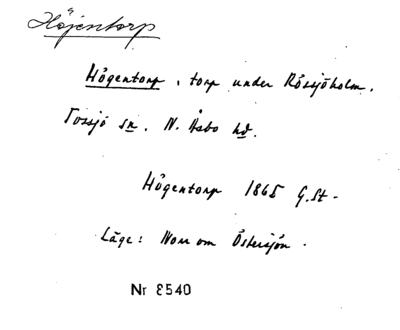 Höjentorp
Högentorp, torp under Rössjöholm.
Tossjö sn. N. Åsbo hd.
Högentorp 1865 G.St.
Läge: Norr om Östersjön.
Nr 8540